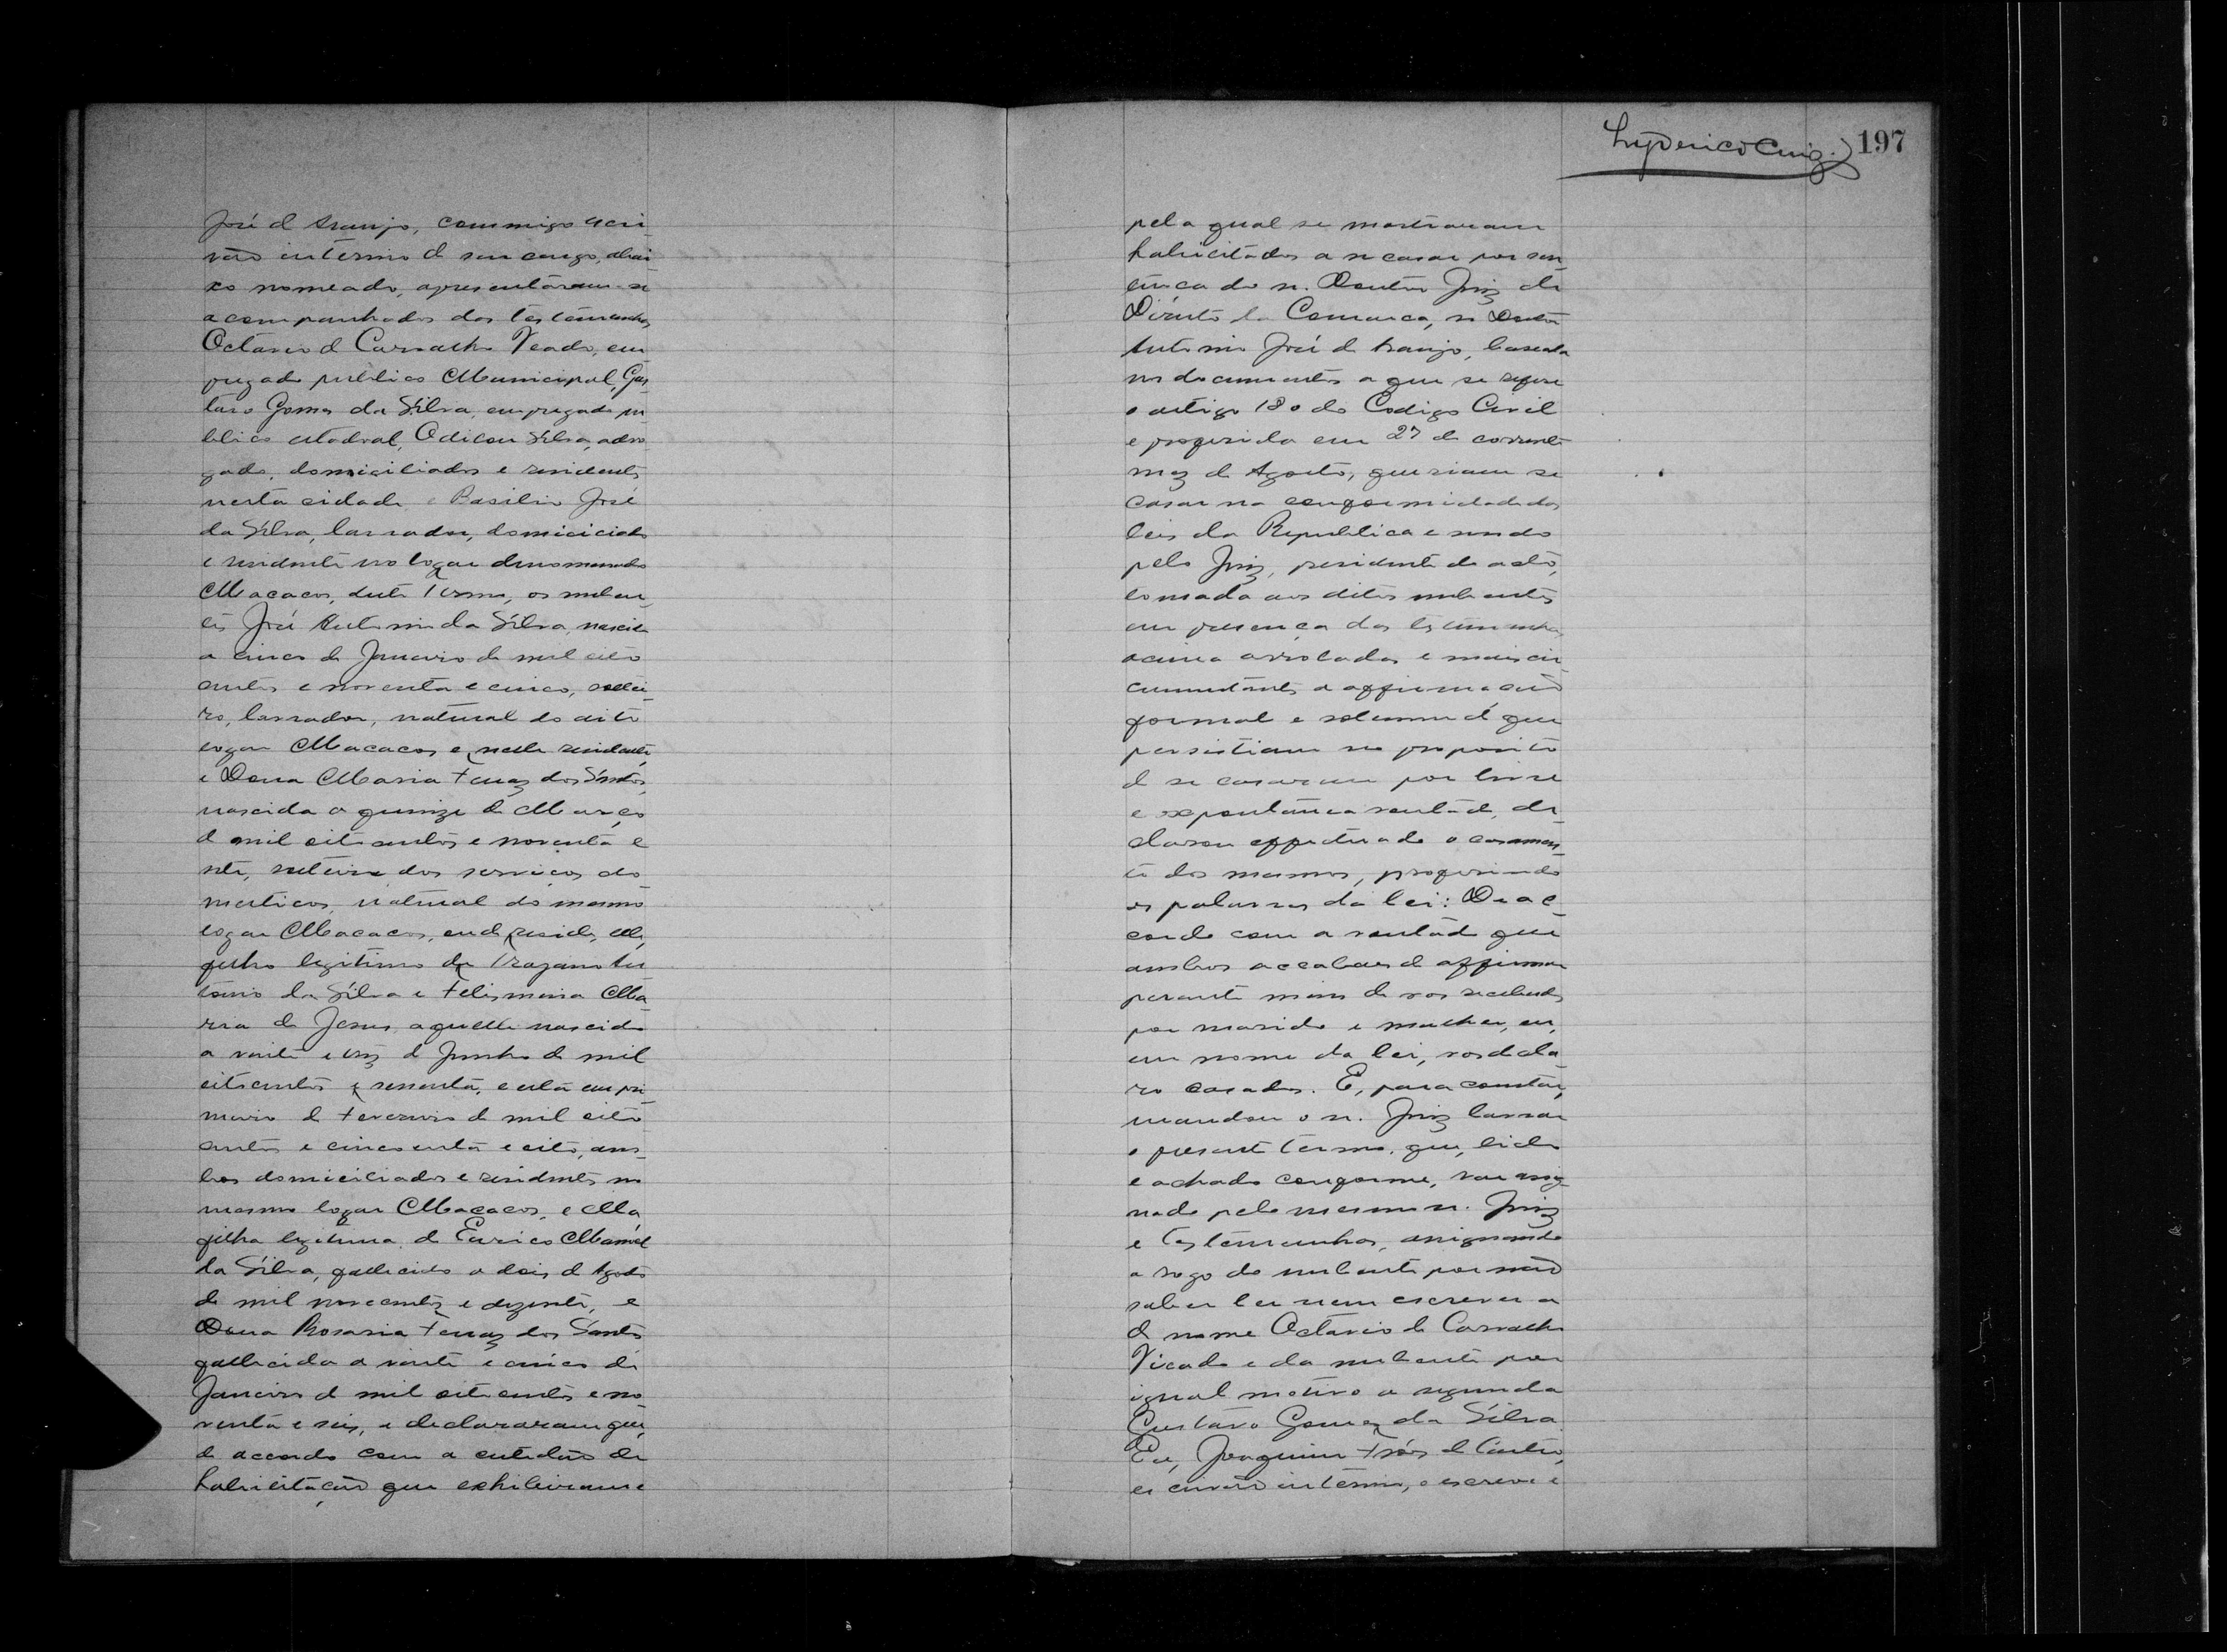 José de Araujo, commigo escri-
vão interino de seu cargo, abai-
xo nomeado, apresentaram-se
acompanhados das testemunhas
Octavio de Carvalho Veado, em-
pregado publico Municipal, Gus-
tavo Gomes da Silva, empregado pu-
blico estadoal, Odilon Silva, advo-
gado, domiciliados e residentes
nesta cidade e Basilio José
da Silva, lavrador, domiciciado
e residente no logar denominado
Macacos, deste Termo, os nuben-
tes José Antonio da Silva, nascido
a cinco de Janeiro de mil oito
centos e noventa e cinco, soltei-
ro, lavrador, natural do dito
logar Macacos e neste residente,
e Dona Maria Ferraz dos Santos,
nascida a quinze de Março
de mil oito centos e noventa e
sete, solteira dos serviços do-
mesticos, natural do mesmo
logar Macacos, onde reside, elle,
filho legitimo de Trajano An-
tonio da Silva e Felismina Ma-
ria de Jesus, aquelle nascido
a vinte e tres de Junho de mil
oitocentos e sessenta, e esta em pri-
meiro de Fevereiro de mil oito
centos e cincoenta e oito, am-
bos domiciliados e residentes no
mesmo logar Macacos, e ella
filha legitima de Eurico Manoel
da Silva, fallecido a dois de Agosto
de mil novecentos e dezesete, e
Dona Rosaria Ferraz dos Santos
fallecida a vinte e cinco de
Janeiro de mil oito centos e no-
venta e seis, e declararam que,
de accordo com a certidão de
habilitação que exhibiram e
197
pela qual se mostraram
habilitados a se casar por sen-
tença do sr. Doutor Juiz de
Direito da Comarca, sr Doutor
Antonio José de Araujo, baseada
nos documentos a que se refere
o artigo 180 do Codigo Civil
e proferida em 27 do corrente
mez de Agosto, queriam se
casar na conformidade das
leis da Republica e sendo
pelo Juiz, presidente do acto,
tomada aos ditos nubentes
em presença das testemunhas
acima arroladas e mais cir-
cumstantes a affirmação
formal e solemne de que
persistiam no proposito
de se casarem por livre
e expontanea vontade, de-
clarou effectuado o casamen-
to dos mesmos, proferindo
as palavras da lei: De ac-
cordo com a vontade que
ambos accabaes de affirmar
perante mim de vos receberdes
por marido e mulher, eu,
em nome da lei, vos decla-
ro casados. E, para constar,
mandou o sr. Juiz lavrar
o presente termo, que, lido
e achado conforme, vae assig-
nado pelo mesmo sr. Juiz
e testemunhas, assignando
a rogo do nubente por não
saber ler nem escrever a
de nome Octavio de Carvalho
Viado e da nubente por
igual motivo a segunda
Gustavo Gomes da Silva
Eu, Joaquim Fróes de Castro,
escrivão interino, o escrevi e